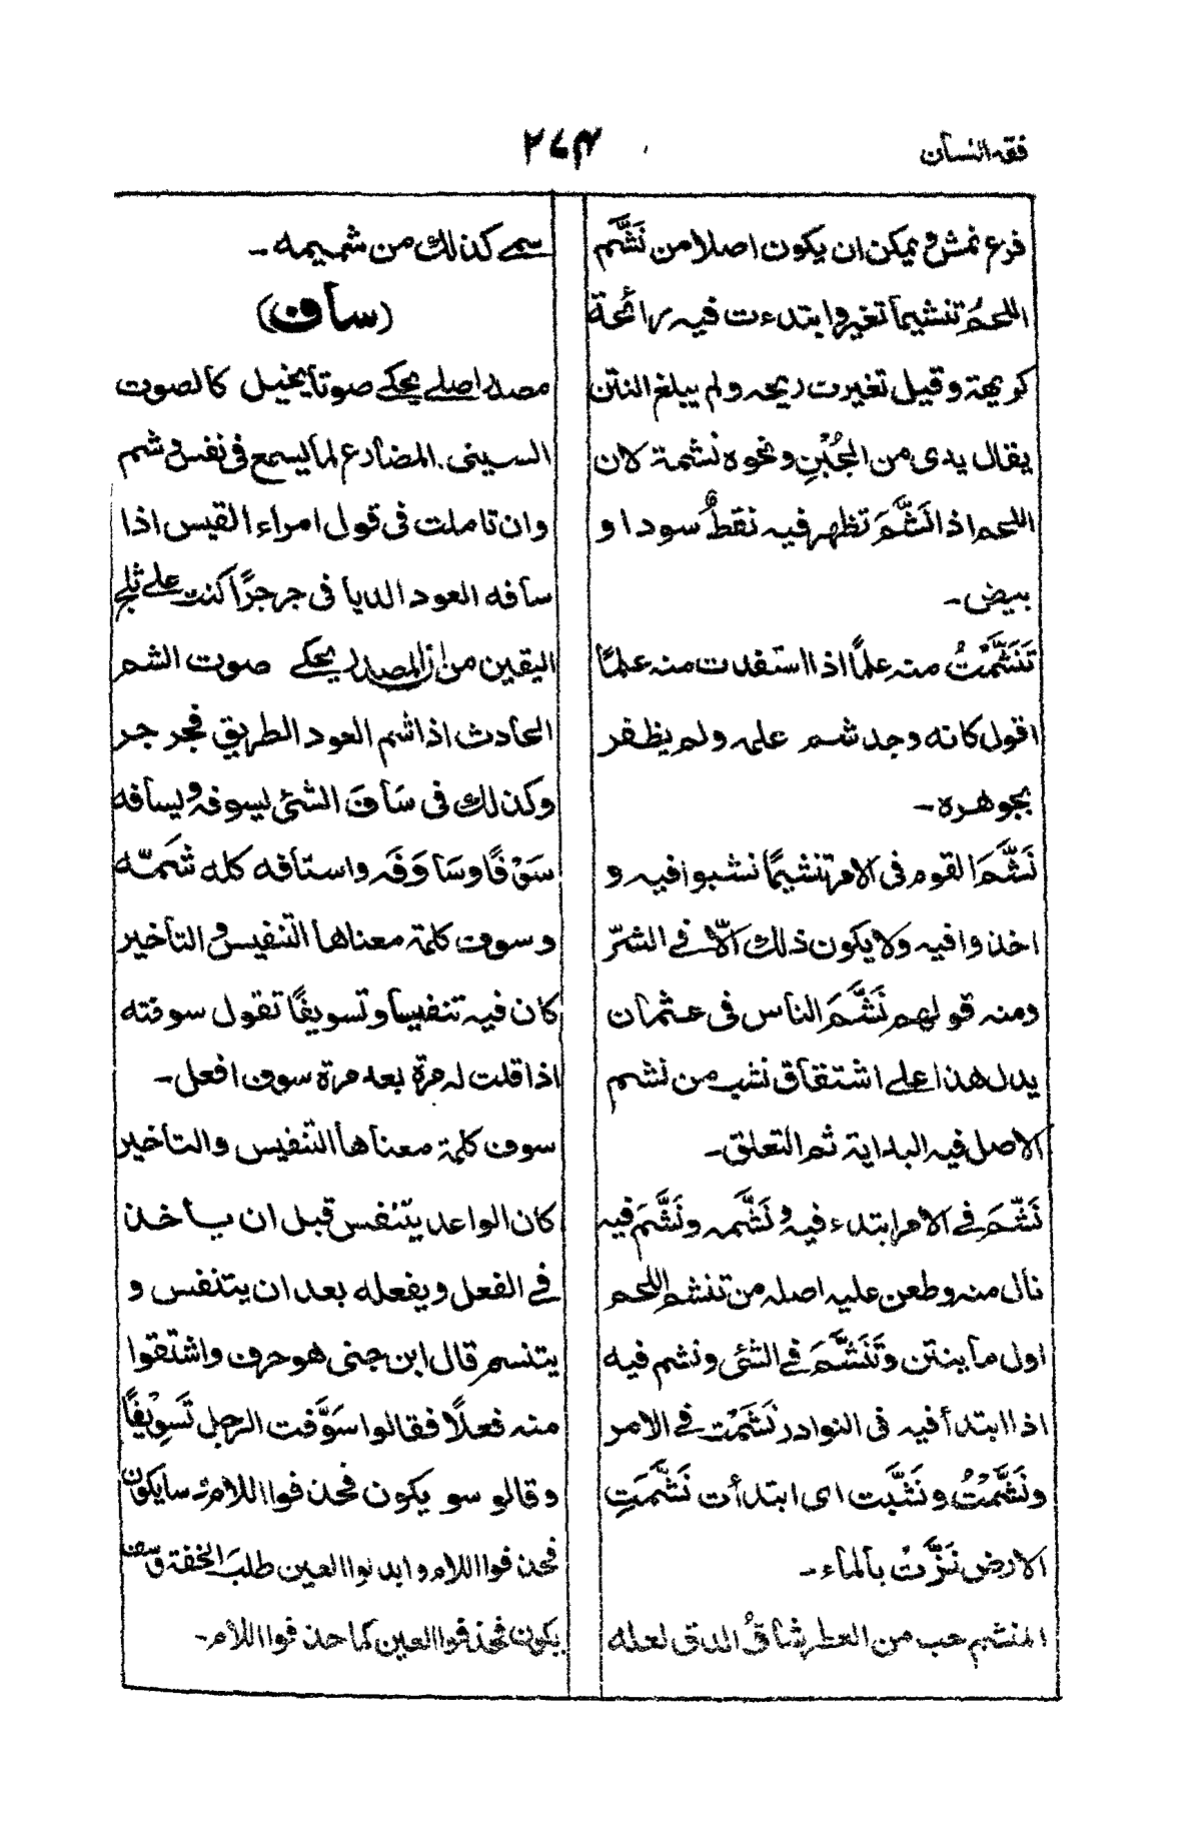 فقه اللسان
٢٧٣
فرع نمش ويمكن ان يكون اصلا من نَشَّم
اللحمُ تنشيما تغير وابتدءت فيه رائحة
كريهة وقيل تغيرت ريحه ولم يبلغ النتن
يقال يدى من الجُبْنِ ونحوه نشمة لان
اللحم اذا نَشَّمَ تظهر فيه نقطٌ سود او
بيض۔
تَنَشَّمْتُ منه علمًا اذا استفدت منه علمًا
اقول كانه وجد شم علم ولم يظفر
بجوهره۔
نَشَّمَ القوم فى الامر تنشيمًا نشبوا فيه و
اخذوا فيه ولا يكون ذلك الّا فى الشرّ
ومنه قولهم نَشَّمَ الناس فى عثمان
يدل هذا على اشتقاق نشب من نشم
الاصل فيه البداية ثم التعلق۔
نَشَّمَ فى الامر ابتدء فيه و نَشَّمه ونَشَّمَ فيه
نال منه وطعن عليه اصله من تنشم اللحم
اول ما ينتن وتَنَشَّمَ فى الشئى ونشم فيه
اذا ابتدأ فيه فى النوادر نَشَمْت فى الامر
ونَشَّمْتُ ونَشَّبت اى ابتدأت نَشَّمَتِ
الارض نَزَّتْ بالماء۔
المنشم حب من العطر شاقُّ الدق لعله
سمى كذلك من شميمه۔
(ساف)
مصدر اصلى يحكى صوتا يخيل كالصوت
السينى. المضارع لما يسمع فى نفس و شم
وان تاملت فى قول امراء القيس اذا
سافه العود الديا فى جرجرًا كنت على ثلج
اليقين من ان المصدر يحكى صوت الشم
الحادث اذا شم العود الطريق فجرجر
وكذلك فى سَافَ الشئى يسوفه ويسافه
سَوْفًا وسَاوَفَه واستافه كله شَمّه
وسوف كلمة معناها التنفيس و التاخير
كان فيه تنفيسا وتسويفًا تقول سوفته
اذا قلت له مرة بعد مرة سوف افعل۔
سوف كلمة معناها التنفيس والتاخير
كان الواعد يتنفس قبل ان ياخذ
فى الفعل ويفعله بعد ان يتنفس و
يتنسم قال ابن جنى هو حرف واشتقوا
منه فعلًا فقالوا سَوَّفت الرجل تَسوِيْفًا
وقالو سو يكون فحذفوا اللام و سا يكون
فحذفوا اللام وابدلوا العين طلبَ الخفة و سف
يكون فحذفوا العين كما حذفوا اللام۔